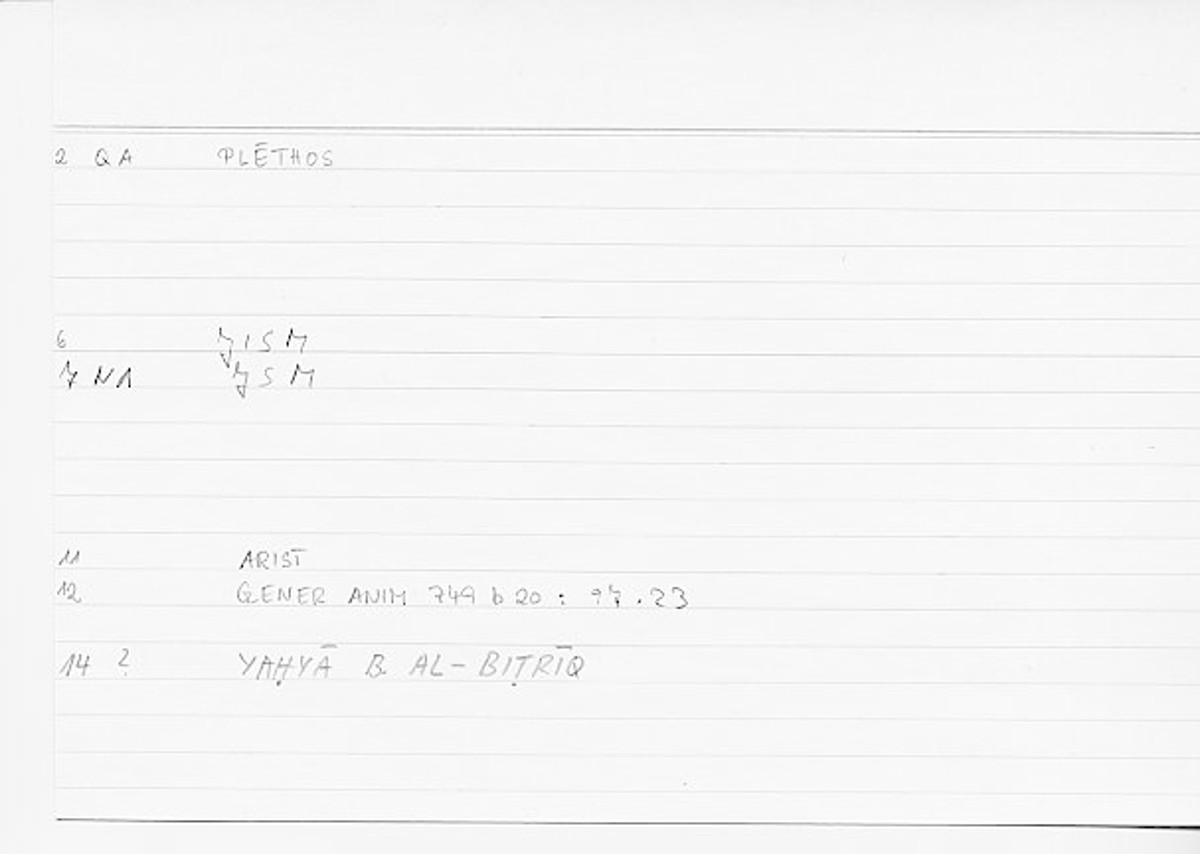 2 QA PLĒTHOS
6 JISM
7 NA JSM
11 ARIST
12 GENER ANIM 749 b 20 : 97.23
14 ? YAḤYĀ B. AL-BIṬRĪQ